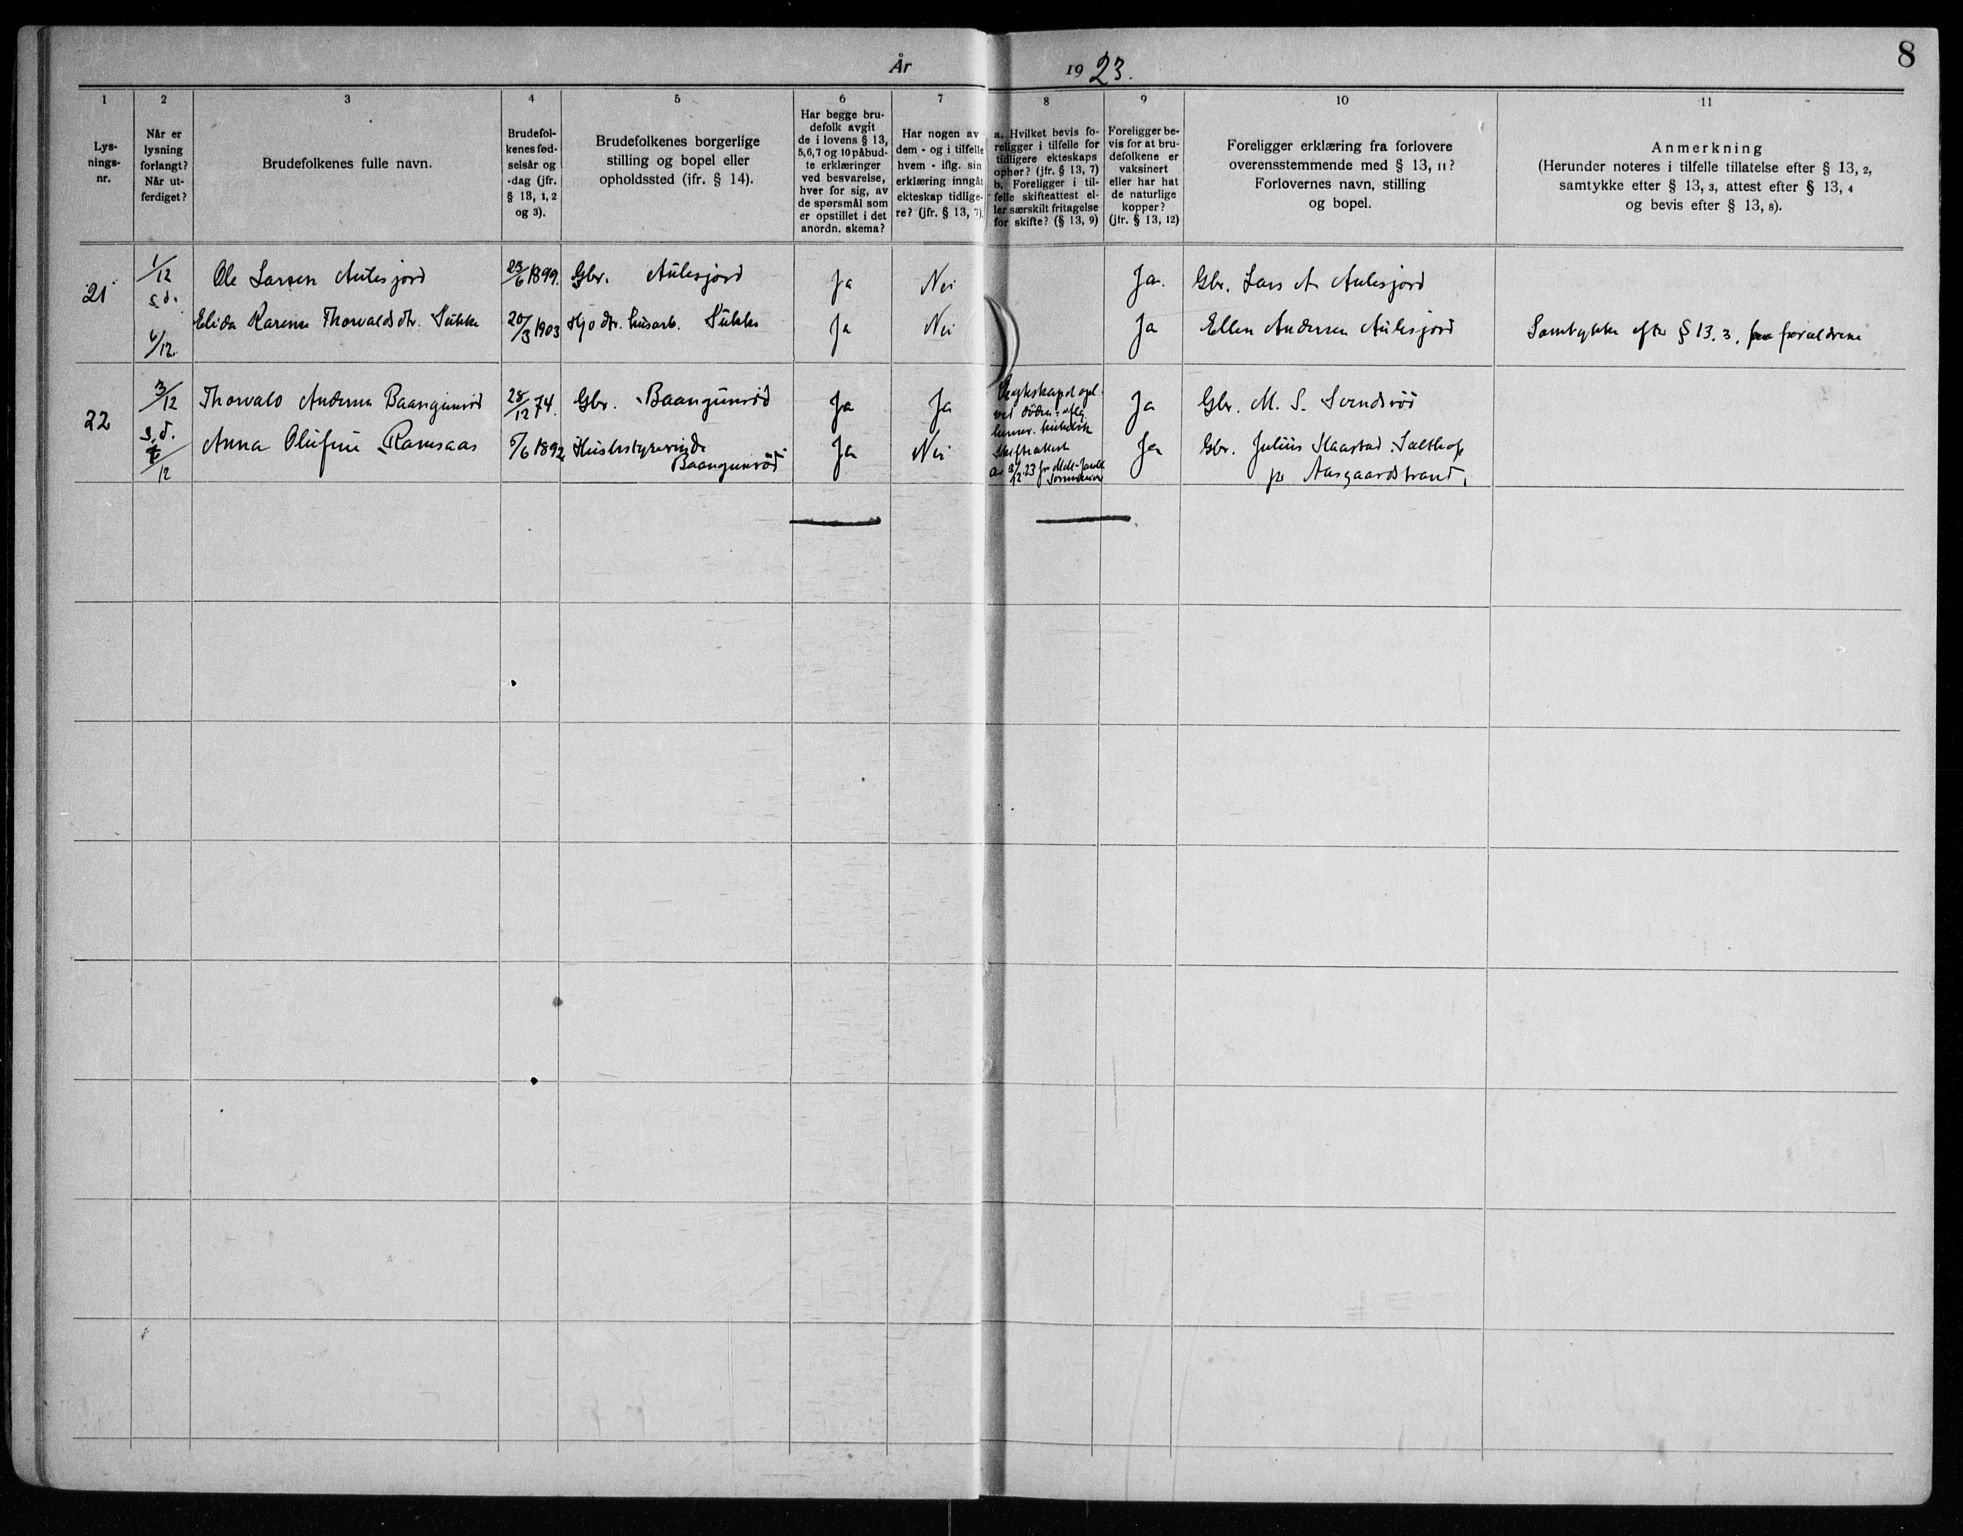 År 1923.
8
1 2 3 4 5 6 7 8 9 10 11
Lys-
nings-
nr.
Når er
lysning
forlangt?
Når ut-
ferdiget?
Brudefolkenes fulle navn.
Brudefol-
kenes fød-
selsår og
-dag (jfr.
§ 13, 1, 2
og 3).
Brudefolkenes borgerlige
stilling og bopel eller
opholdssted (ifr. § 14).
Har begge bru-
defolk avgit
de i lovens § 13,
5,6,7 og 10 påbud-
te erklæringer
ved besvarelse,
hver for sig, av
de spørsmål som
er opstillet i det
anordn. skema?
Har nogen av
dem - og i tilfelle
hvem - iflg. sin
erklæring inngåt
ekteskap tidlige-
re? (jfr. § 13, 7).
a. Hvilket bevis fo-
religger i tilfelle for
tidligere ekteskaps
ophør? (jfr. § 13, 7)
b. Foreligger i til-
felle skifteattest el-
ler særskilt fritagelse
for skifte? (§ 13, 9)
Foreligger be-
vis for at bru-
defolkene er
vaksinert
eller har hat
de naturlige
kopper?
(jfr. § 13, 12)
Foreligger erklæring fra forlovere
overensstemmende med § 13, 11?
Forlovernes navn, stilling
og bopel.
Anmerkning
(Herunder noteres i tilfelle tillatelse efter § 13, 2,
samtykke efter § 13, 3, attest efter § 13, 4
og bevis efter § 13, 8).
21 1/12 Ole Larsen Aulesjord 23/6 1899. Gbr. Aulesjord Ja Nei Ja. Gbr. Lars A. Aulesjord
s.d. 6/12. Elida Karine Thorvaldsdtr. Sukke 20/3 1903 Hjo dtr. husarb. Sukke Ja Nei Ja Ellen Andersen Aulesjord Samtykke efter § 13. 3. forældrene
22 3/12 Thorvald Andersen Baangunrød 28/12 74. Gbr. Baangunrød Ja Ja Ja Gbr. M. S. Svendsrød
ved døden
s.d. Anna Olufine Ramsaas 5/6 1892 Husbestyrerinde Ja Nei Skifteattest Ja Gbr. Julius Haastad
/12 Baangunrød av 3/12 23 pr Aasgaardstrand.